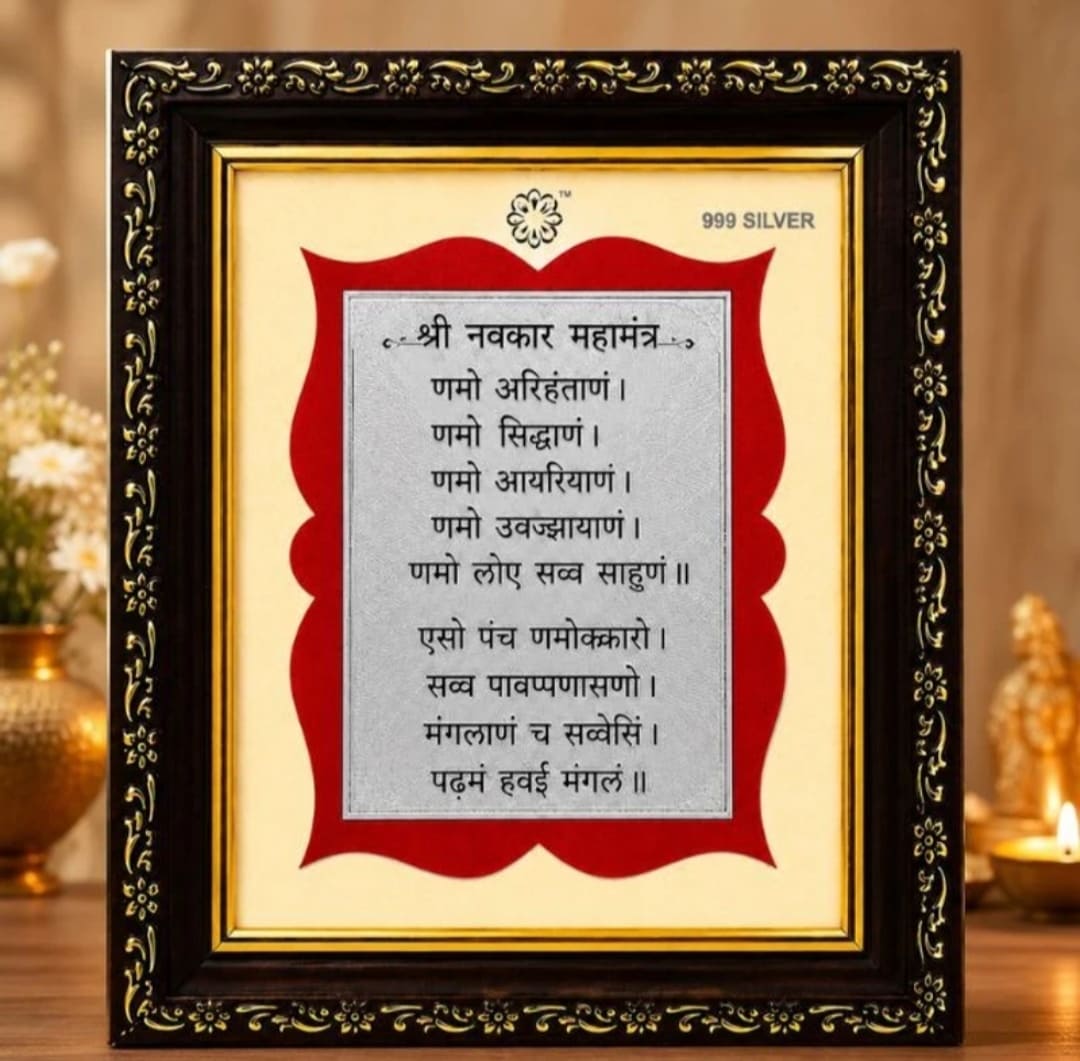 TM
999 SILVER
श्री नवकार महामंत्र
णमो अरिहंताणं।
णमो सिद्धाणं।
णमो आयरियाणं।
णमो उवज्झायाणं।
णमो लोए सव्व साहुणं॥
एसो पंच णमोक्कारो।
सव्व पावप्पणासणो।
मंगलाणं च सव्वेसिं।
पढ़मं हवई मंगलं॥